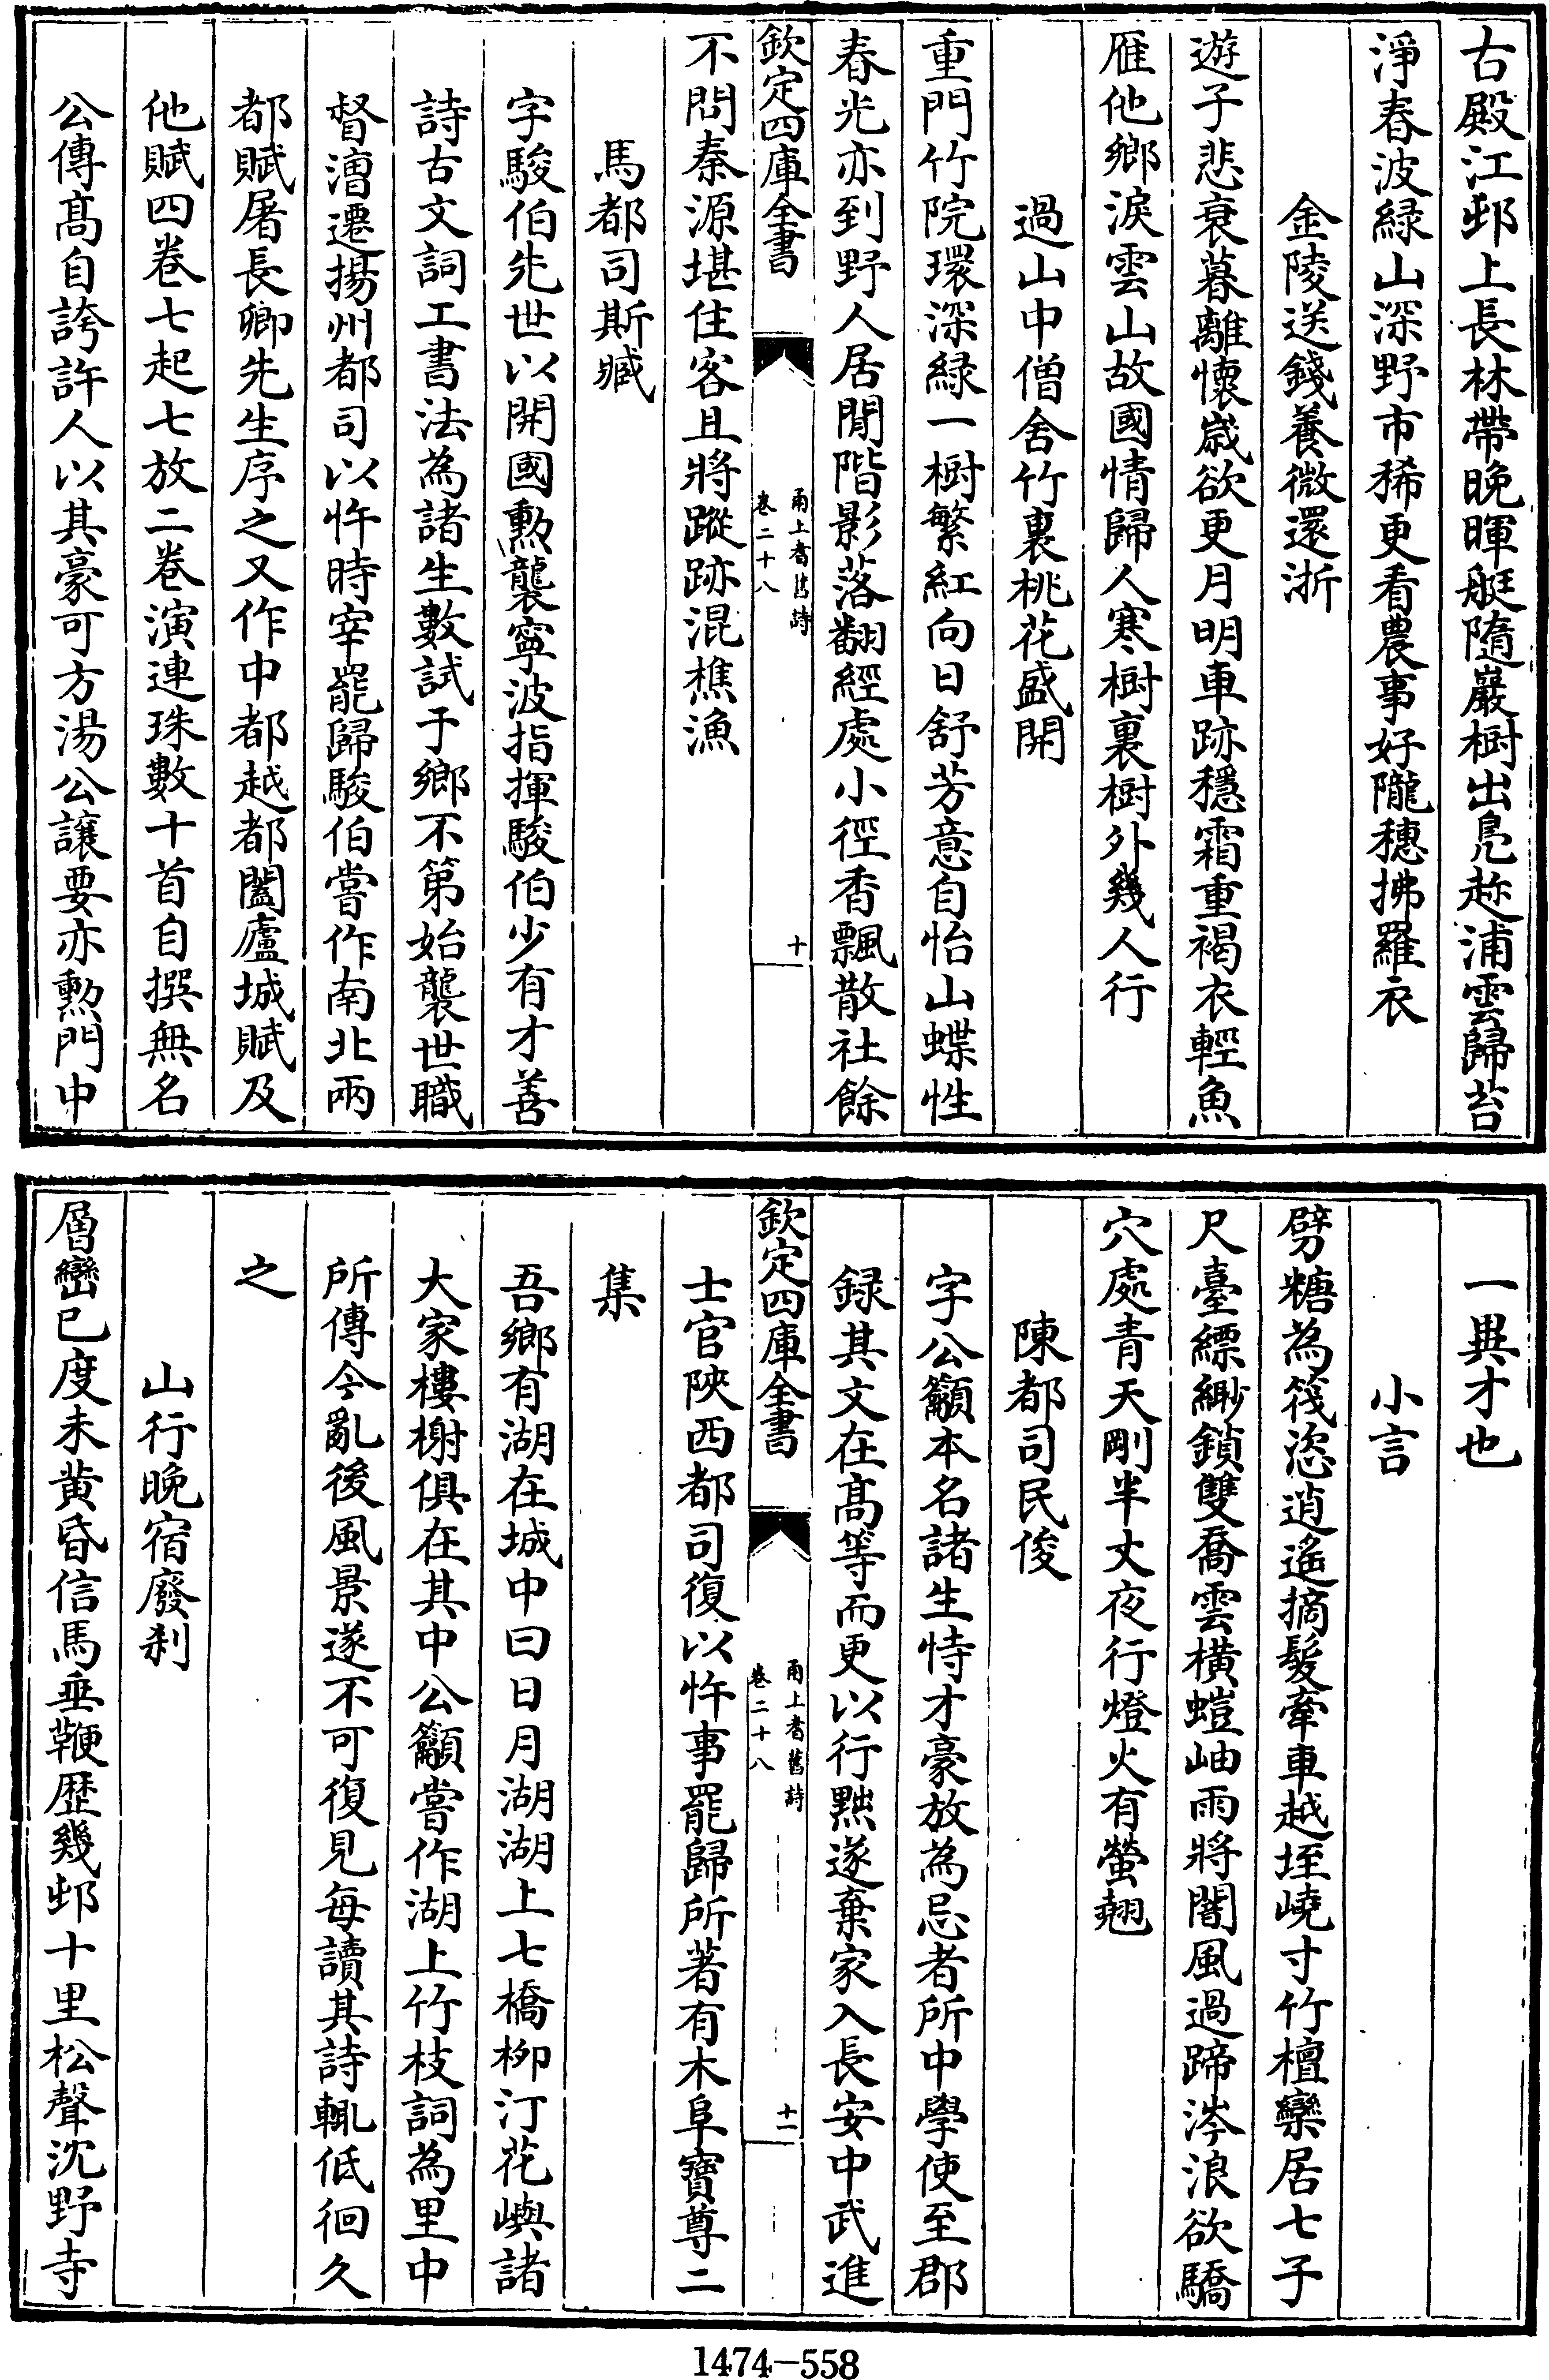 古殿江邨上長林帶晚暉艇隨巖樹出鳧趂浦雲歸苔
淨春波緑山深野市稀更看農事好隴穗拂羅衣
金陵送錢養微還浙
遊子悲衰暮離懷嵗欲更月明車跡穩霜重褐衣輕魚
雁他鄉淚雲山故國情歸人寒樹裏樹外幾人行
過山中僧舍竹裏桃花盛開
重門竹院環深緑一樹繁紅向日舒芳意自怡山蝶性
春光亦到野人居閒階影落翻經處小徑香飄散社餘
欽定四庫全書
甬上耆舊詩
卷二十八
十
不問秦源堪住客且將蹤跡混樵漁
馬都司斯臧
字駿伯先世以開國勲襲寧波指揮駿伯少有才善
詩古文詞工書法為諸生數試于鄉不第始襲世職
督漕遷揚州都司以忤時宰罷歸駿伯嘗作南北兩
都賦屠長卿先生序之又作中都越都闔廬城賦及
他賦四卷七起七放二卷演連珠數十首自撰無名
公傳髙自誇許人以其豪可方湯公讓要亦勲門中
一異才也
小言
劈糖為筏恣逍遙摘髮牽車越垤嶢寸竹檀欒居七子
尺臺縹緲鎖雙喬雲横螘岫雨將闇風過蹄涔浪欲驕
穴處青天剛半丈夜行燈火有螢翹
陳都司民俊
字公籲本名諸生恃才豪放為忌者所中學使至郡
録其文在髙等而更以行黜遂棄家入長安中武進
欽定四庫全書
甬上耆舊詩
卷二十八
十一
士官陝西都司復以忤事罷歸所著有木阜寶尊二
集
吾鄉有湖在城中曰日月湖湖上七橋栁汀花嶼諸
大家樓榭俱在其中公籲嘗作湖上竹枝詞為里中
所傳今亂後風景遂不可復見每讀其詩輒低徊久
之
山行晚宿廢刹
層巒已度未黄昏信馬垂鞭歴幾邨十里松聲沈野寺
1474-558